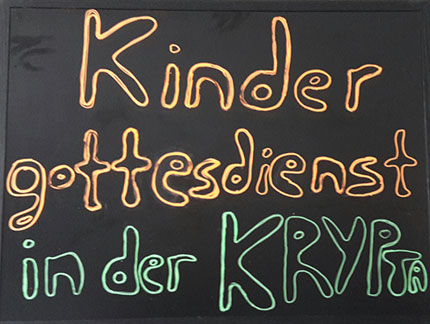 Kinder
gottesdienst
in der KRYPTA